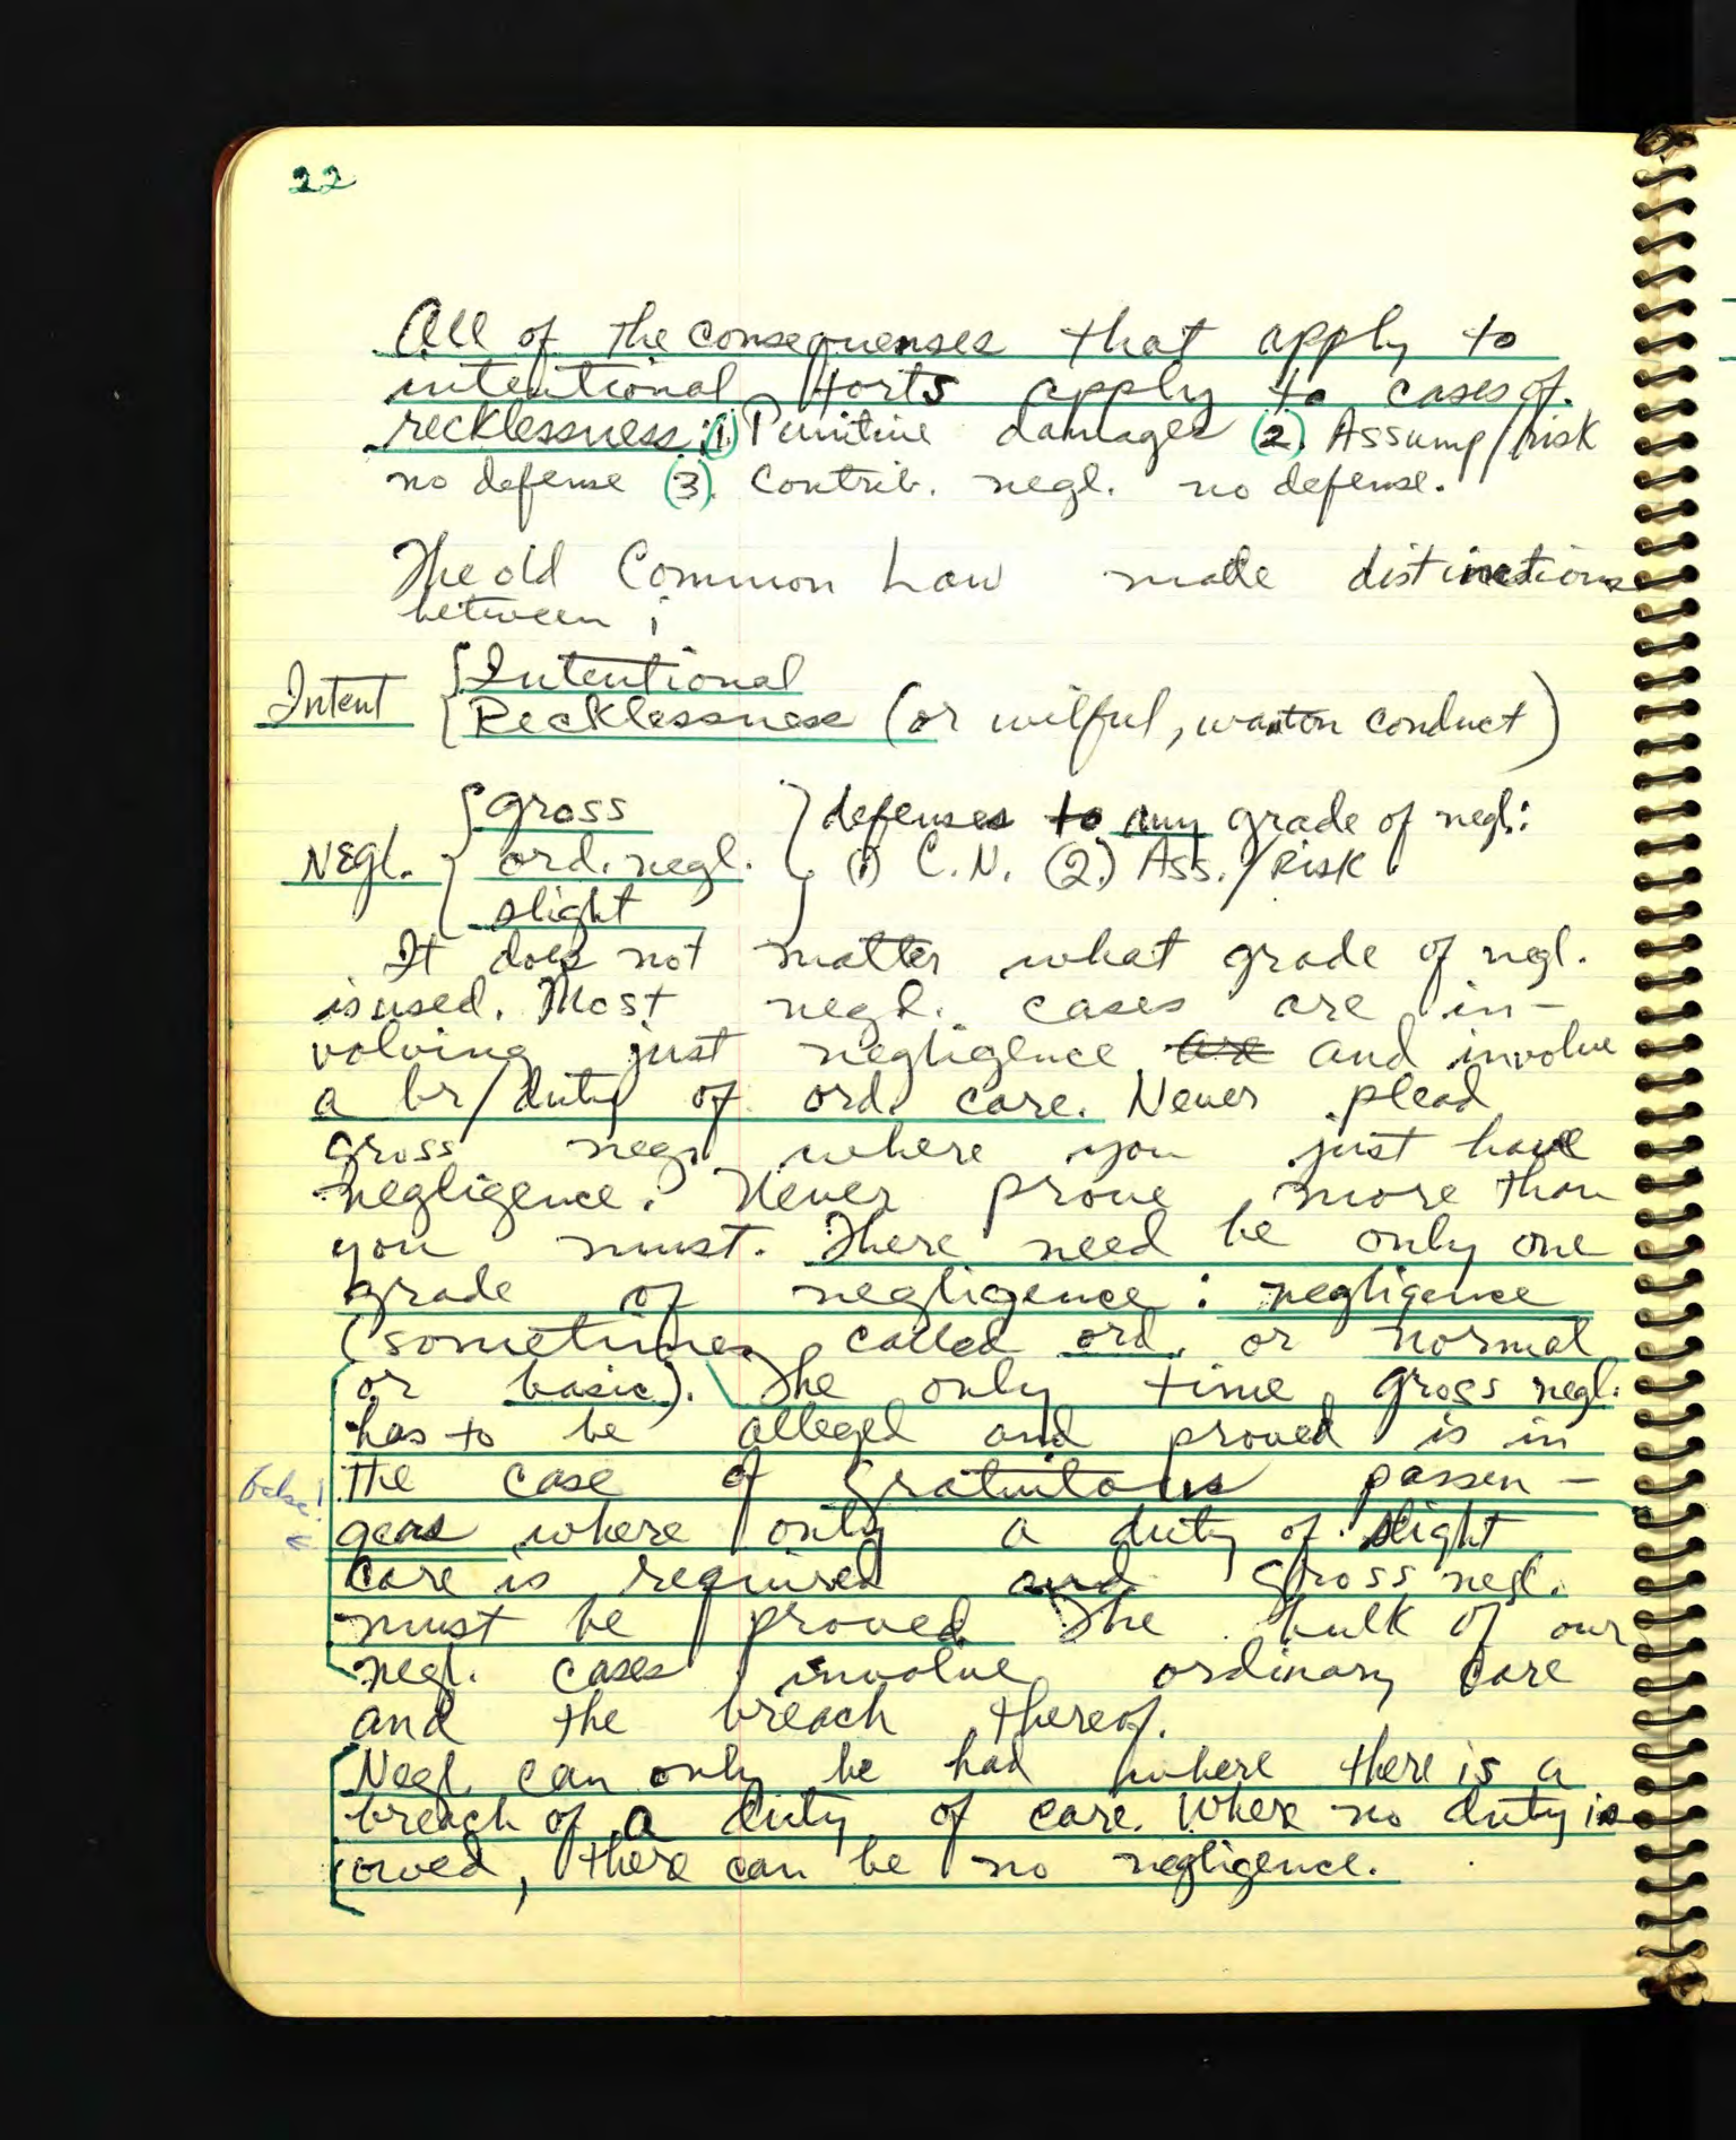 22
All of the consequenses that apply to
intentional torts apply to cases of
recklessness: (1) Punitive damages (2). Assump/risk
no defense (3). Contrib. negl. no defense.
The old Common Law made distinctions
between:
Intent { Intentional
Recklessness (or wilful, wanton conduct)
Negl. { gross } defenses to any grade of negl:
ord. negl. (1) C.N. (2.) Ass./Risk
slight
It does not matter what grade of negl.
is used. Most negl. cases are in-
volving just negligence are and involve
a br/duty of ord. care. Never plead
gross neg. where you just have
negligence. Never prove more than
you must. There need be only one
grade of negligence: negligence
(sometimes called ord. or normal
or basic). The only time gross negl.
has to be alleged and proved is in
the case of gratuitous passen-
gers where only a duty of slight
care is required and gross negl.
must be proved. The bulk of our
negl. cases involve ordinary care
and the breach thereof.
Negl. can only be had where there is a
breach of a duty of care. Where no duty is
owed, there can be no negligence.